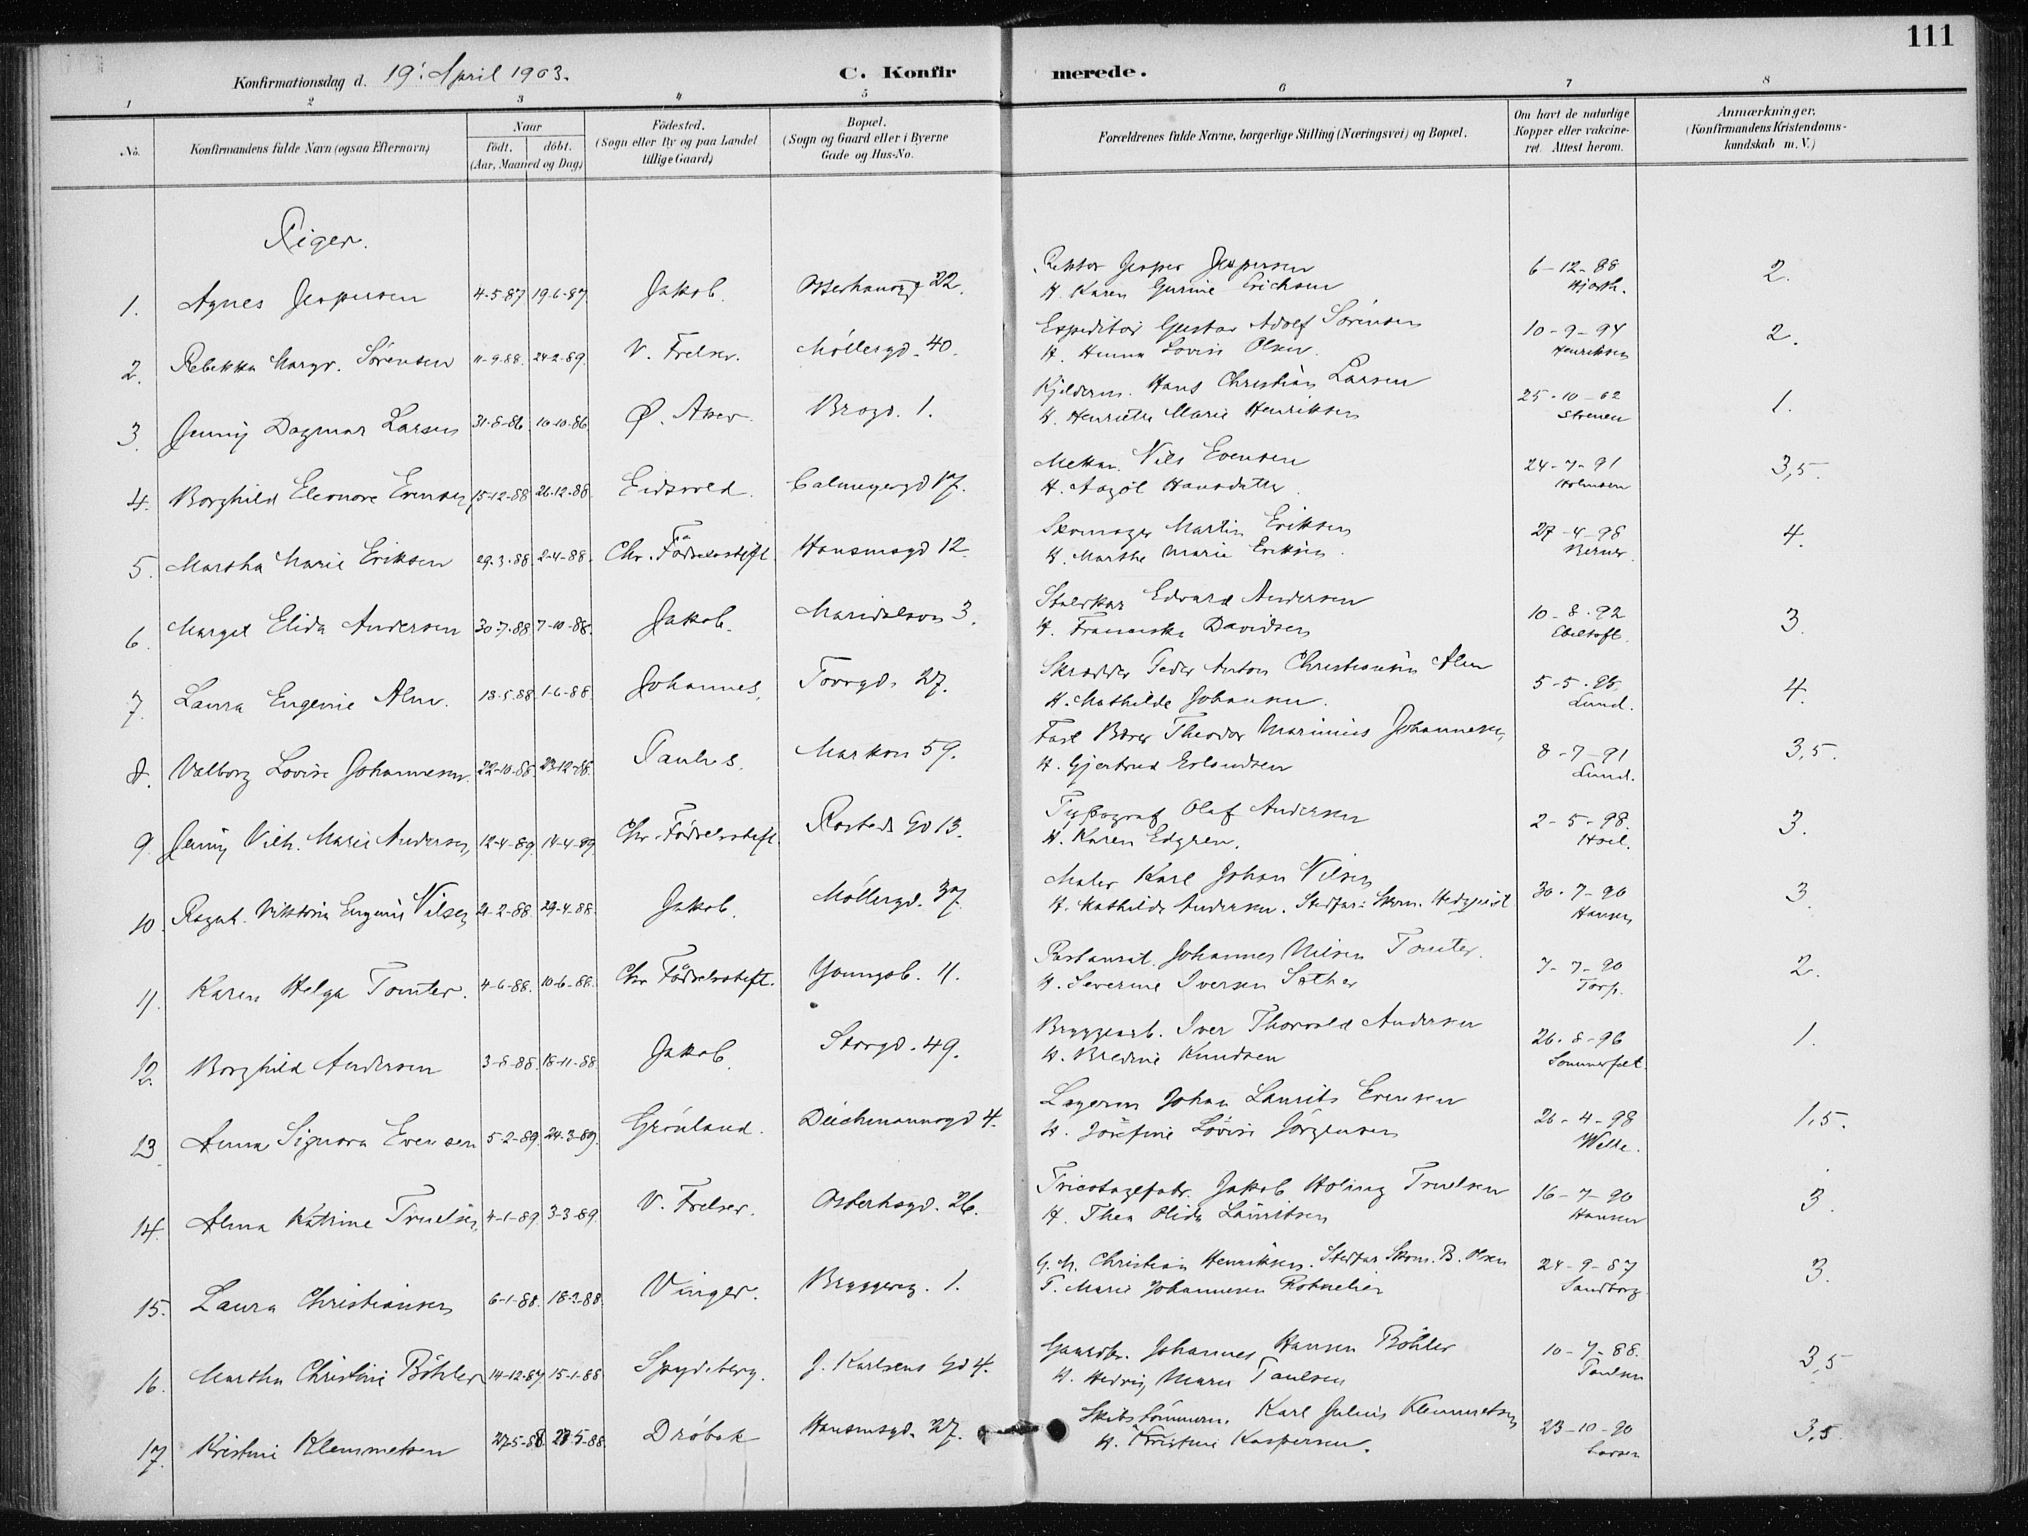 111
Konfirmationsdag d. 19. April 1903. C. Konfirmerede.
1 2 3 4 5 6 7 8
No. Konfirmandens fulde Navn (ogsaa Efternavn) Naar født. døbt. (Aar, Maaned og Dag) Fødested. (Sogn eller By og paa Landet tillige Gaard) Bopæl. (Sogn og Gaard eller i Byerne Gade og Hus-No. Forældrenes fulde Navne, borgerlige Stilling (Næringsvei) og Bopæl. Om havt de naturlige Kopper eller vakcineret. Attest herom. Anmærkninger. (Konfirmandens Kristendomskundskab m. V.)
Piger.
1. Agnes Jespersen 4-5-87 19-6-87 Jakob. Osterhausg 22. Rektor Jesper Jespersen 6-12-88 2.
H. Karen Gurine Erichsen Hjorth.
2. Rebekka Margr. Sörensen 11-9-88. 24-2-89. V. Frelser. Möllergd. 40. Expeditör Gustav Adolf Sörensen 10-9-94 2.
H. Anna Lovise Olsen. Henriksen
3. Jenny Dagmar Larsen 31-8-86. 10-10-86 Ø. Aker. Brogd. 1. Kjelderm. Hans Christian Larsen 25-10-02 1.
H. Henriette Marie Henriksen Steenen
4. Borghild Eleonore Evensen 15-12-88 26-12-88. Eidsvold. Calmeyergd 17. Mekan. Nils Evensen 24-7-91 3,5.
H. Aagöt Hansdatter Holmsen
5. Martha Marie Eriksen 29-3-88 2-4-88. Chr. Födselsstift. Hausmsgd 12. Skomager Martin Eriksen 27-4-98 4.
H. Marthe Marie Eriksen. Berner.
6. Margit Elida Andersen 30-7-88 7-10-88. Jakob. Maridalsvn 3. Staldkar Edvard Andersen 10-8-92 3.
H. Franciska Davidsen Ebeltoft.
7. Laura Eugenie Alm. 13-5-88 1-6-88. Johannes. Torvgd. 27. Skrædder Peder Anton Christiansen Alm 5-5-98. 4.
H. Mathilde Johansen. Lund.
8. Valborg Lovise Johannesen. 22-10-88. 23-12-88. Paulus. Markvn 59. Fast Bærer Theodor Marinius Johannesen 8-7-91 3,5.
H. Gjertrud Erlandsen Lund.
9. Jenny Vilh. Marie Andersen 12-4-89. 14-4-89 Chr. Födselsstift. Rosteds Gd 13. Typograf Olaf Andersen 2-5-98. 3.
H. Karen Edgren. Hoel.
10. Ragnh. Viktoria Eugenie Nilsen 21-2-88. 29-4-88. Jakob. Möllergd. 37. Maler Karl Johan Nilsen 30-7-90 3.
H. Mathilde Andersen. Stedfar: Skom. Hedquist Hansen
11. Karen Helga Tomter. 4-6-88. 10-6-88. Chr. Födselsstift. Youngsg. 11. Restaurat. Johannes Nilsen Tomter. 7-7-90 2.
H. Severine Iversen Sæther Torp.
12. Borghild Andersen 3-8-88. 18-11-88 Jakob. Storgd. 49. Bryggearb. Iver Thorvald Andersen 26-8-96 1.
H. Bredine Knudsen Sommerfelt.
13. Anna Signora Evensen 5-2-89. 24-3-89. Grönland. Deichmannsgd 4. Lagerm. Johan Laurits Evensen 26-4-98 1,5.
H. Josefine Lovise Jörgensen Welle.
14. Alma Katrine Truelsen 4-1-89. 3-3-89. V. Frelser. Osterhsgd. 26. Tricotagefabr. Jakob Holing Truelsen 16-7-90 3.
H. Thea Olida Lauritsen Hansen
15. Laura Christiansen 6-1-88. 18-3-88. Vinger. Bryggerg. 1. G. M. Christian Henriksen. Stedfar: Skom. B. Olsen 24-9-87 3.
T. Marie Johannesen Sandborg
16. Martha Christine Böhler 14-12-87 15-1-88 Spydeberg. J. Karlsens Gd 4. Gaardbr. Johannes Hansen Böhler 10-7-88. 3,5
H. Hedvig Marie Paulsen Paulsen
17. Kristine Klemmetsen 27-5-88 Dröbak Hausmsgd. 27. Skibstömmerm. Karl Julius Klemmetsen 23-10-90 3,5.
H. Kristine Kaspersen. Larsen